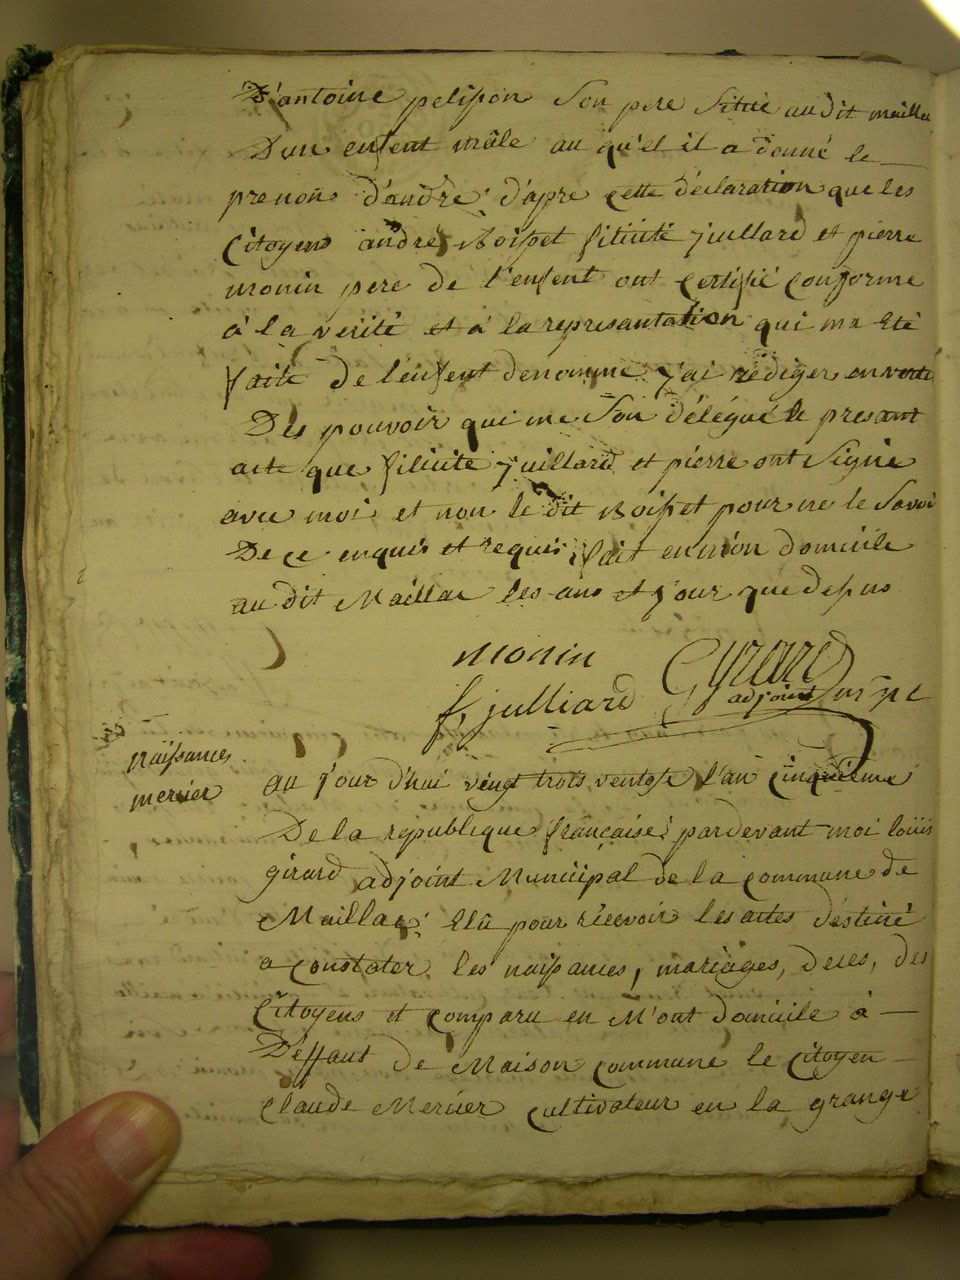 D'antoine pelisson son pere Situé audit maillac
Dun enfent mâle au qu'el il a donné le
prenons d'andré d'apre cette déclaration que les
Citoyens andre Boisset filicité juillard et pierre
monin pere de l'enfent ont certifié conforme
à la verité et à la represantation qui ma été
faite de l'enfent denommé j'ai rédiger en vertu
Des pouvoir qui me Son délégué le presant
acte que filicite juillard et pierre ont Signé
avec moi et non le dit Boisset pour ne le Savoir
De ce enquis et requis fait en mon domicile
au dit Maillac les ans et jour que desus
monin
Gyrard
f, julliard
adjoint
naissances
mercier
au jour d'hui vingt trois ventose l'an cinquieme
De la republique française, pardevant moi louis
girard adjoint Municipal de la commune de
Maillac, élû pour récevoir les actes déstiné
a constater les naissances, mariages, deces, des
Citoyens et comparu en M'ont domicile à
Déffaut de Maison commune le citoyen
Claude Mercier cultivateur en la grange